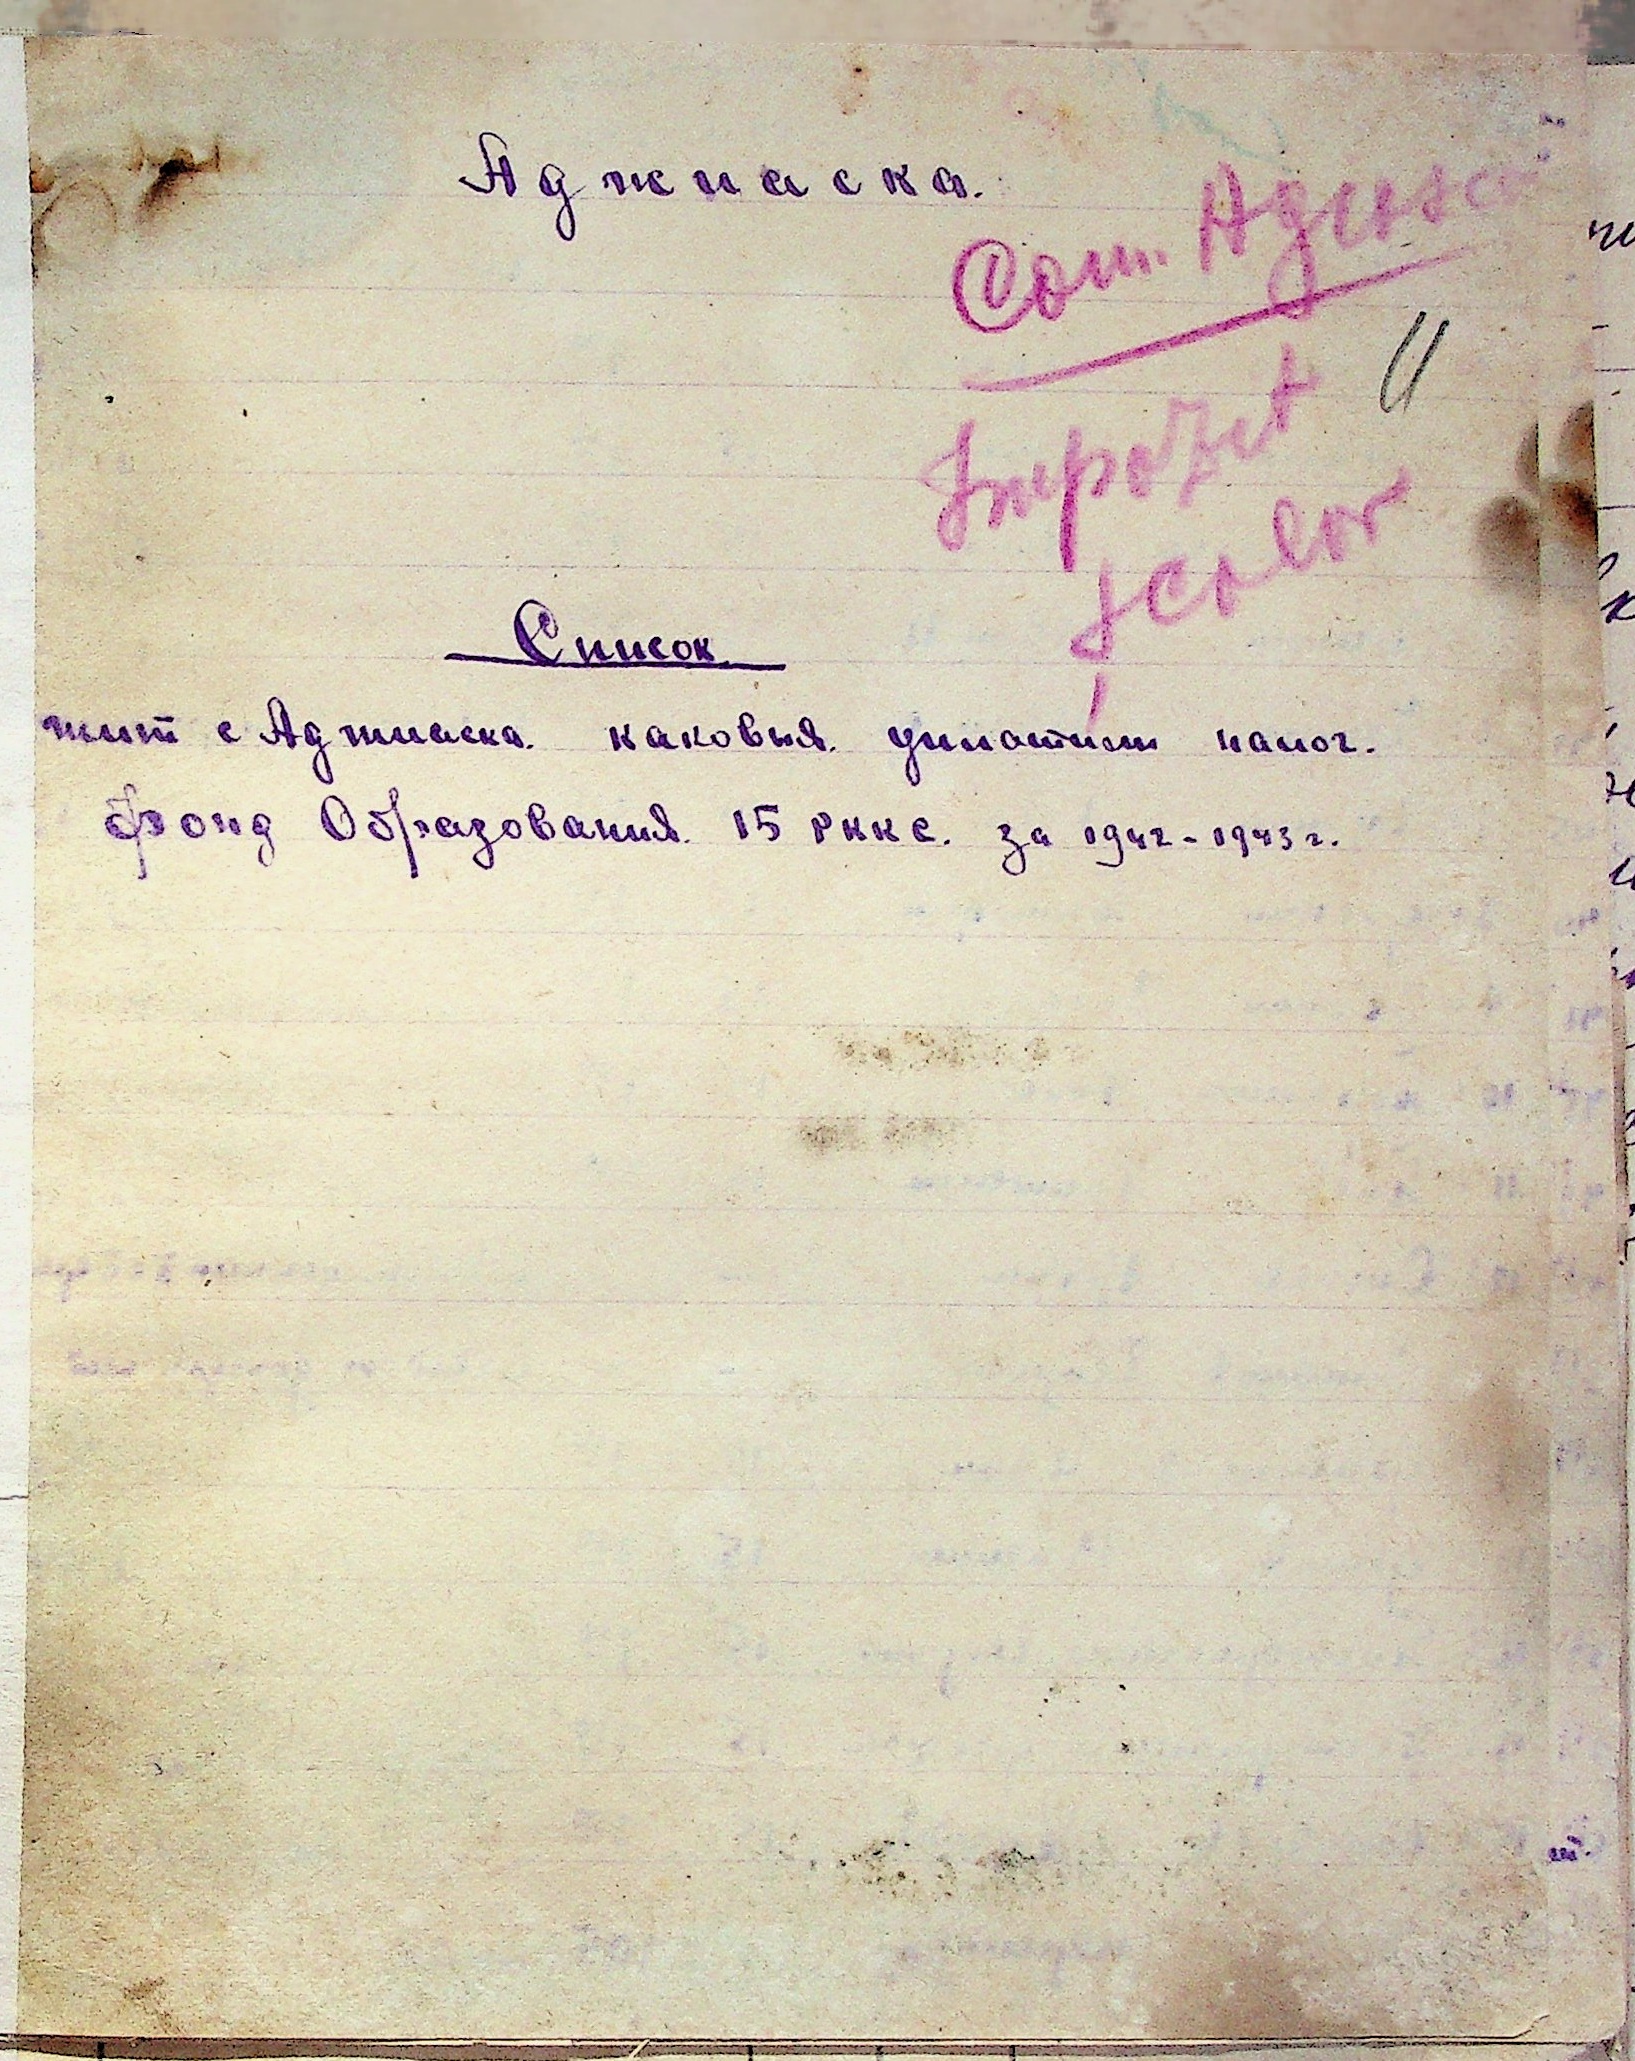 Аджиаска.
Com. Adjiasca
Impozit
școlar
Список
жит с Аджиаска. каковыя. уплотили налог.
фонд Образования. 15 рккс. за 1942-1943 г.